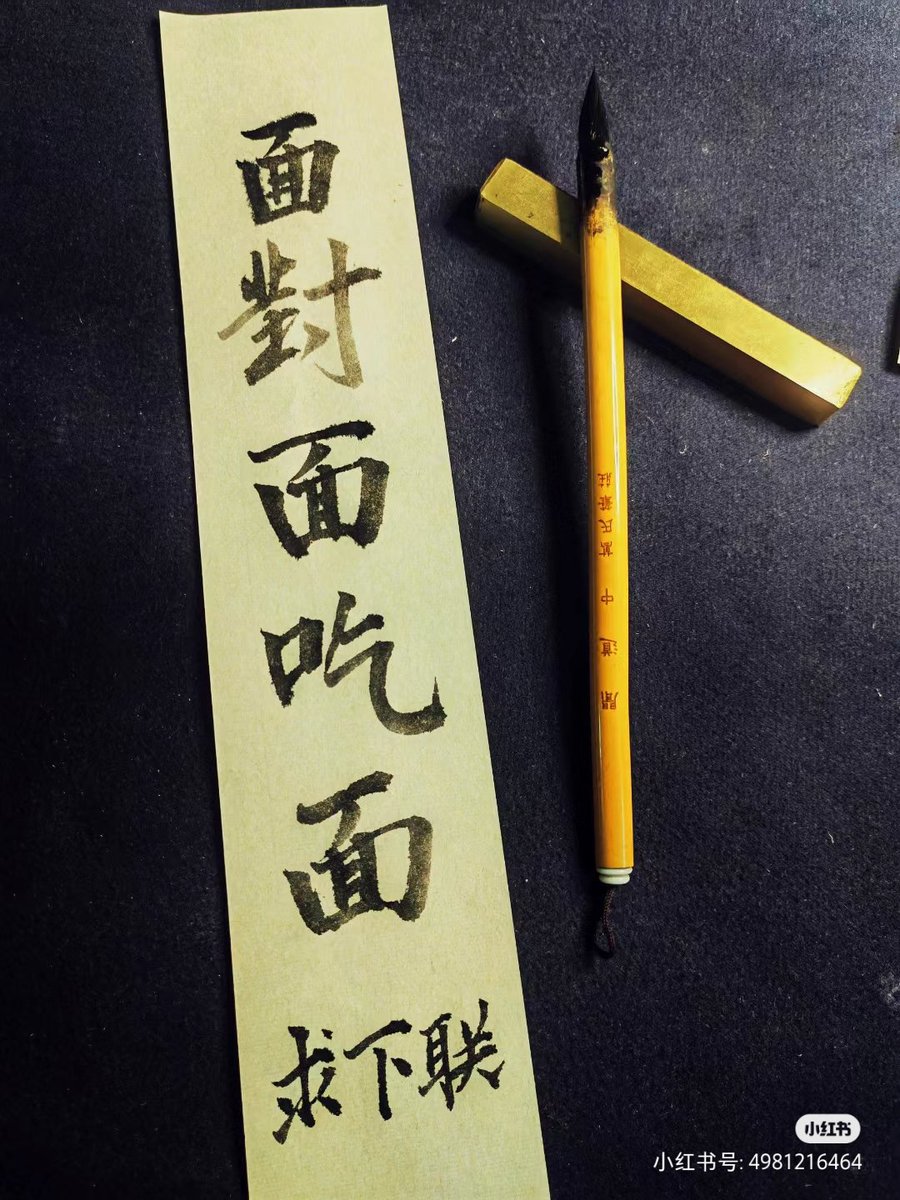 面對面吃面
求下联
小红书
小红书号: 4981216464